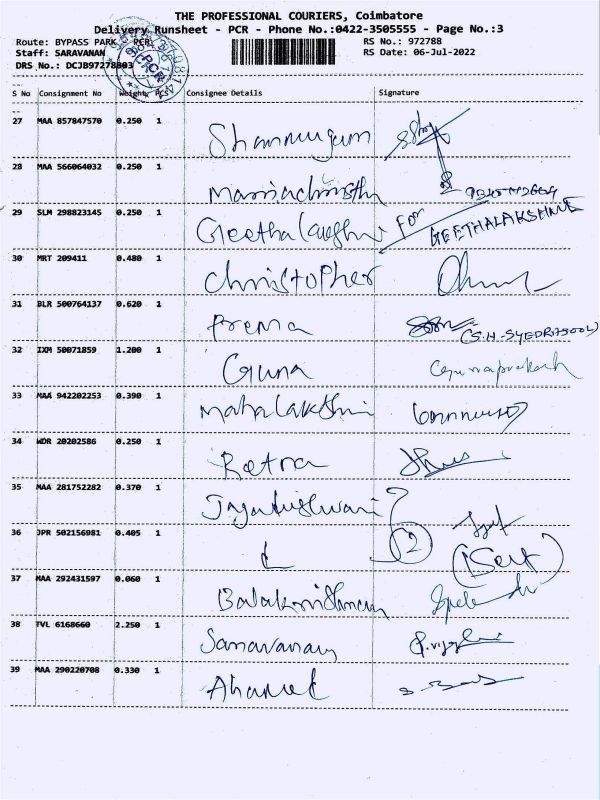 THE PROFESSIONAL COURIERS, Coimbatore
Delivery Runsheet - PCR - Phone No.:0422-3505555 - Page No.:3
Route: BYPASS PARK - PCR RS No.: 972788
Staff: SARAVANAN RS Date: 06-Jul-2022
DRS No.: DCJB97278803
PCR
S No Consignment No Weight PCS Consignee Details Signature
27 MAA 857847570 0.250 1 Shanmugam
28 MAA 566064032 0.250 1
29 SLM 298823145 0.250 1 Geethalakshmi FOR GEETHALAKSHMI
30 MRT 209411 0.480 1 Christopher
31 BLR 500764137 0.620 1 Prema (S.H-SYEDRASOOL)
32 IXM 50071859 1.200 1 Guna Gunaprakash
33 MAA 942202253 0.390 1 Mahalakshmi
34 WDR 20202586 0.250 1 Retna
35 MAA 281752282 0.370 1
36 JPR 502156981 0.405 1 2 (Self)
37 MAA 292431597 0.060 1 Balakrishnan
38 TVL 6168660 2.250 1 Saravanan
39 MAA 290220708 0.330 1 Ahamed